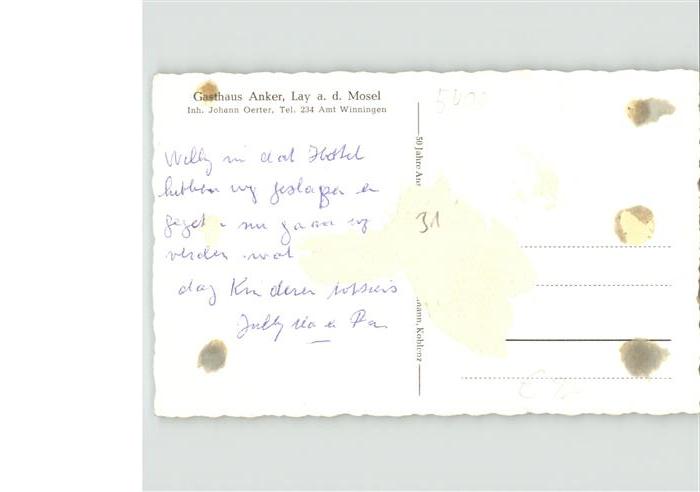 Gasthaus Anker, Lay a. d. Mosel
Inh. Johann Oerter, Tel. 234 Amt Winningen
Willy in dat Hotel
hebben wy geslapen en
gegeten nu gaan wy
verder wat
dag Kinderen
Jully Ma en Pa
50 Jahre
mann, Koblenz
31